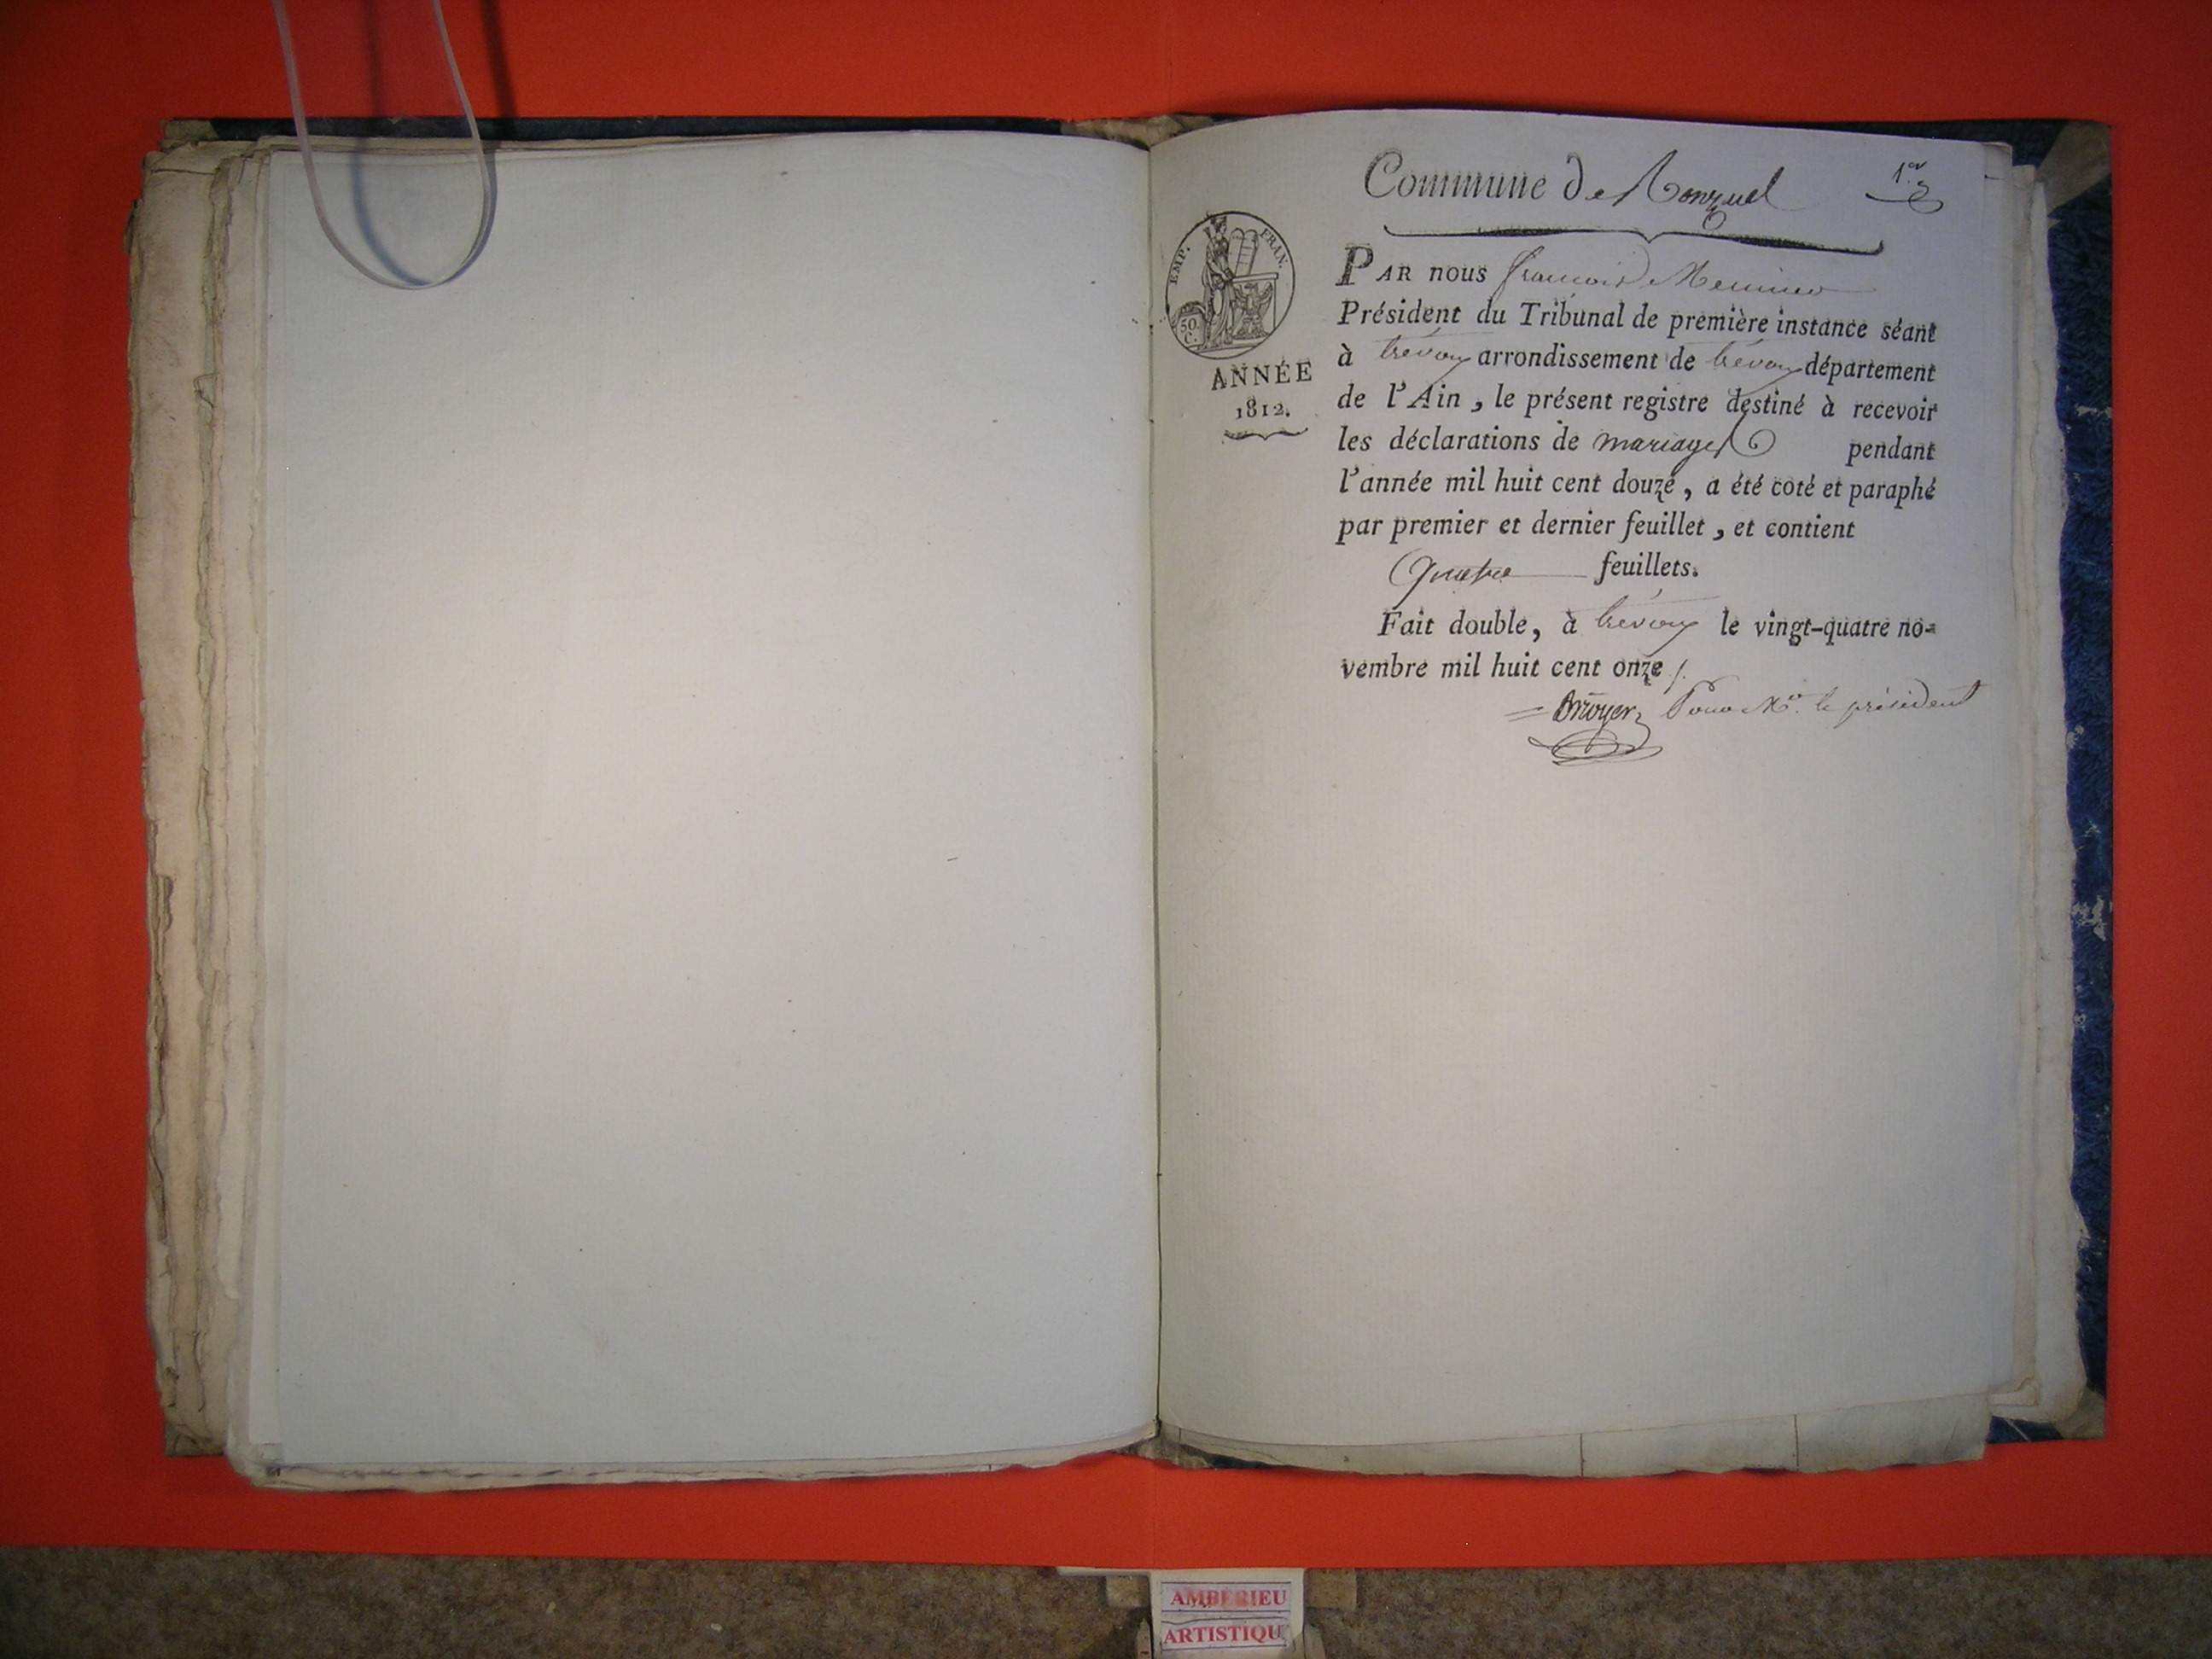 Commune de
1.er
EMP. FRAN.
50 C.
ANNÉE
1812.
PAR nous françois
Président du Tribunal de première instance séant
à trévoux arrondissement de trévoux département
de l'Ain, le présent registre destiné à recevoir
les déclarations de mariages pendant
l'année mil huit cent douze, a été coté et paraphé
par premier et dernier feuillet, et contient
Quatre feuillets.
Fait double, à trévoux le vingt-quatre no-
vembre mil huit cent onze
Pour Mr. le président
AMBERIEU
ARTISTIQU